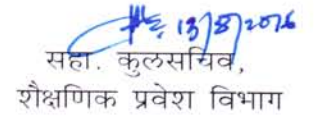 13/8/2016
सहा. कुलसचिव,
शैक्षणिक प्रवेश विभाग